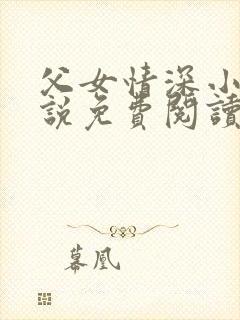 父女情深小
說免費閱讀
幕凰